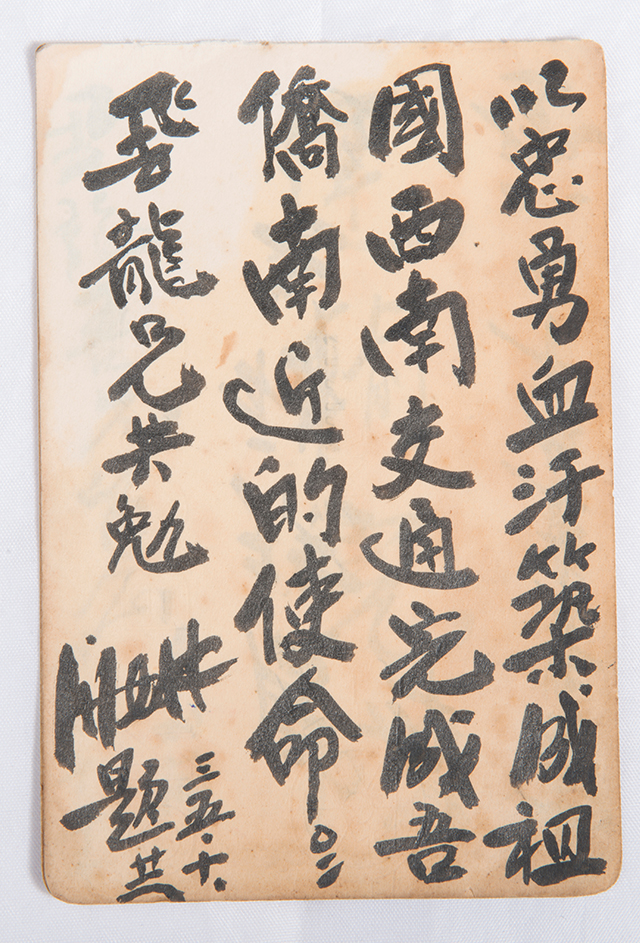 以忠勇血汗築成祖
國西南交通完成吾
僑南近的使命。
飛龍兄共勉
題
三五·十·